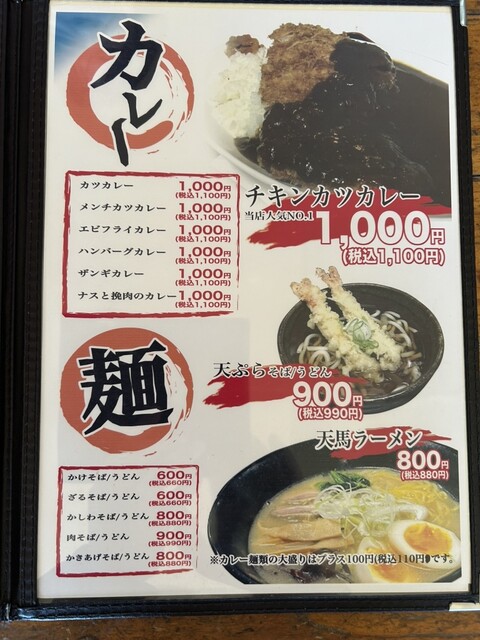 カレー
カツカレー 1,000円
(税込1,100円)
メンチカツカレー 1,000円
(税込1,100円)
エビフライカレー 1,000円
(税込1,100円)
ハンバーグカレー 1,000円
(税込1,100円)
ザンギカレー 1,000円
(税込1,100円)
ナスと挽肉のカレー 1,000円
(税込1,100円)
チキンカツカレー
当店人気NO.1
1,000円
(税込1,100円)
麺
天ぷらそば/うどん
900円
(税込990円)
天馬ラーメン
800円
(税込880円)
かけそば/うどん 600円
(税込660円)
ざるそば/うどん 600円
(税込660円)
かしわそば/うどん 800円
(税込880円)
肉そば/うどん 900円
(税込990円)
かきあげそば/うどん 800円
(税込880円)
※カレー麺類の大盛りはプラス100円(税込110円)です。